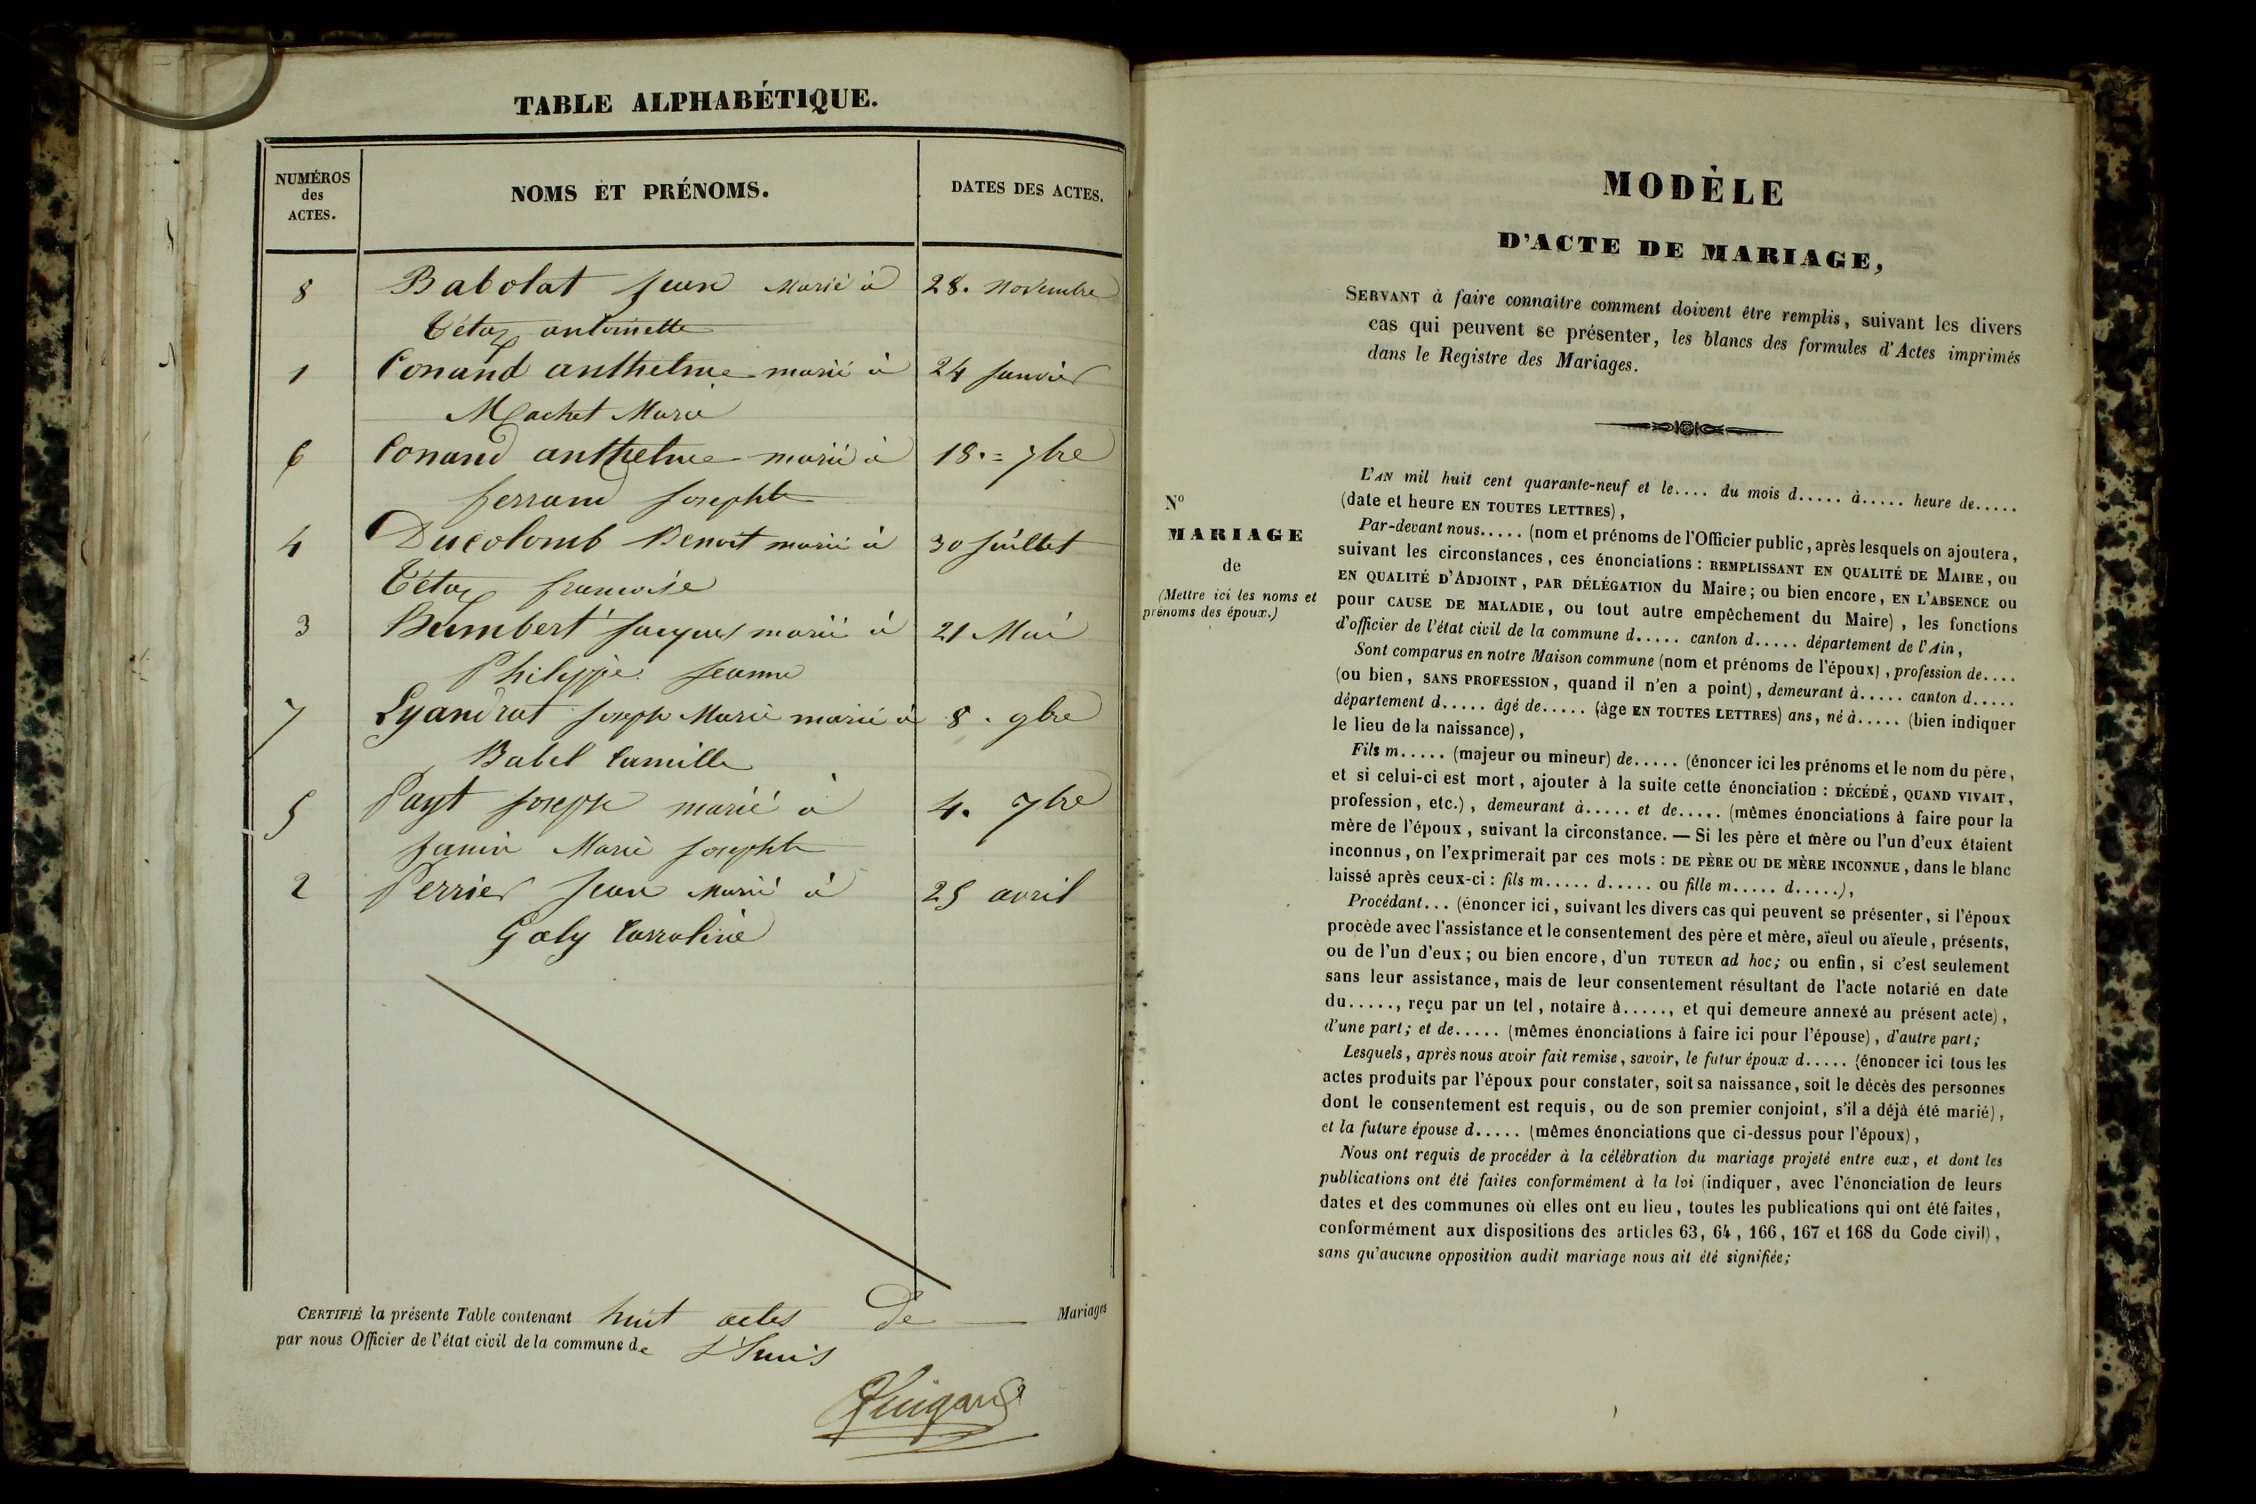 TABLE ALPHABÉTIQUE.
NUMÉROS des ACTES.
NOMS ET PRÉNOMS.
DATES DES ACTES.
8 Babolat Jean marié à 28. novembre
Tétaz antoinette
1 Conand anthelme marié à 24 Janvier
Machet Marie
6 Conand anthelme marié à 18. = 7bre
ferrand Josephte
4 Ducolomb Benoit marié à 30 Juillet
Tétaz francoise
3 Humbert Jacques marié à 21 Mai
Philippe Jeanne
7 Lyandrat Joseph Marie marié à 8. 9bre
Babel Camille
5 Payt Joseph marié à 4. 7bre
Janin Marie Josephte
2 Perrier Jean Marié à 25 avril
Galy Carroline
CERTIFIÉ la présente Table contenant huit actes De Mariages
par nous Officier de l'état civil de la commune de
MODÈLE
D'ACTE DE MARIAGE,
SERVANT à faire connaître comment doivent être remplis, suivant les divers
cas qui peuvent se présenter, les blancs des formules d'Actes imprimés
dans le Registre des Mariages.
N°
MARIAGE
de
(Mettre ici les noms et
prénoms des époux.)
L'AN mil huit cent quarante-neuf et le.... du mois d..... à..... heure de.....
(date et heure EN TOUTES LETTRES),
Par-devant nous..... (nom et prénoms de l'Officier public, après lesquels on ajoutera,
suivant les circonstances, ces énonciations : REMPLISSANT EN QUALITÉ DE MAIRE, ou
EN QUALITÉ D'ADJOINT, PAR DÉLÉGATION du Maire; ou bien encore, EN L'ABSENCE ou
pour CAUSE DE MALADIE, ou tout autre empêchement du Maire), les fonctions
d'officier de l'état civil de la commune d..... canton d..... département de l'Ain,
Sont comparus en notre Maison commune (nom et prénoms de l'époux), profession de....
(ou bien, SANS PROFESSION, quand il n'en a point), demeurant à..... canton d.....
département d..... âgé de..... (âge EN TOUTES LETTRES) ans, né à..... (bien indiquer
le lieu de la naissance),
Fils m..... (majeur ou mineur) de..... (énoncer ici les prénoms et le nom du père,
et si celui-ci est mort, ajouter à la suite cette énonciation : DÉCÉDÉ, QUAND VIVAIT,
profession, etc.), demeurant à..... et de..... (mêmes énonciations à faire pour la
mère de l'époux, suivant la circonstance. — Si les père et mère ou l'un d'eux étaient
inconnus, on l'exprimerait par ces mots : DE PÈRE OU DE MÈRE INCONNUE, dans le blanc
laissé après ceux-ci : fils m..... d..... ou fille m..... d.....),
Procédant... (énoncer ici, suivant les divers cas qui peuvent se présenter, si l'époux
procède avec l'assistance et le consentement des père et mère, aïeul ou aïeule, présents,
ou de l'un d'eux; ou bien encore, d'un TUTEUR ad hoc; ou enfin, si c'est seulement
sans leur assistance, mais de leur consentement résultant de l'acte notarié en date
du....., reçu par un tel, notaire à....., et qui demeure annexé au présent acte),
d'une part; et de..... (mêmes énonciations à faire ici pour l'épouse), d'autre part;
Lesquels, après nous avoir fait remise, savoir, le futur époux d..... (énoncer ici tous les
actes produits par l'époux pour constater, soit sa naissance, soit le décès des personnes
dont le consentement est requis, ou de son premier conjoint, s'il a déjà été marié),
et la future épouse d..... (mêmes énonciations que ci-dessus pour l'époux),
Nous ont requis de procéder à la célébration du mariage projeté entre eux, et dont les
publications ont été faites conformément à la loi (indiquer, avec l'énonciation de leurs
dates et des communes où elles ont eu lieu, toutes les publications qui ont été faites,
conformément aux dispositions des articles 63, 64, 166, 167 et 168 du Code civil),
sans qu'aucune opposition audit mariage nous ait été signifiée;